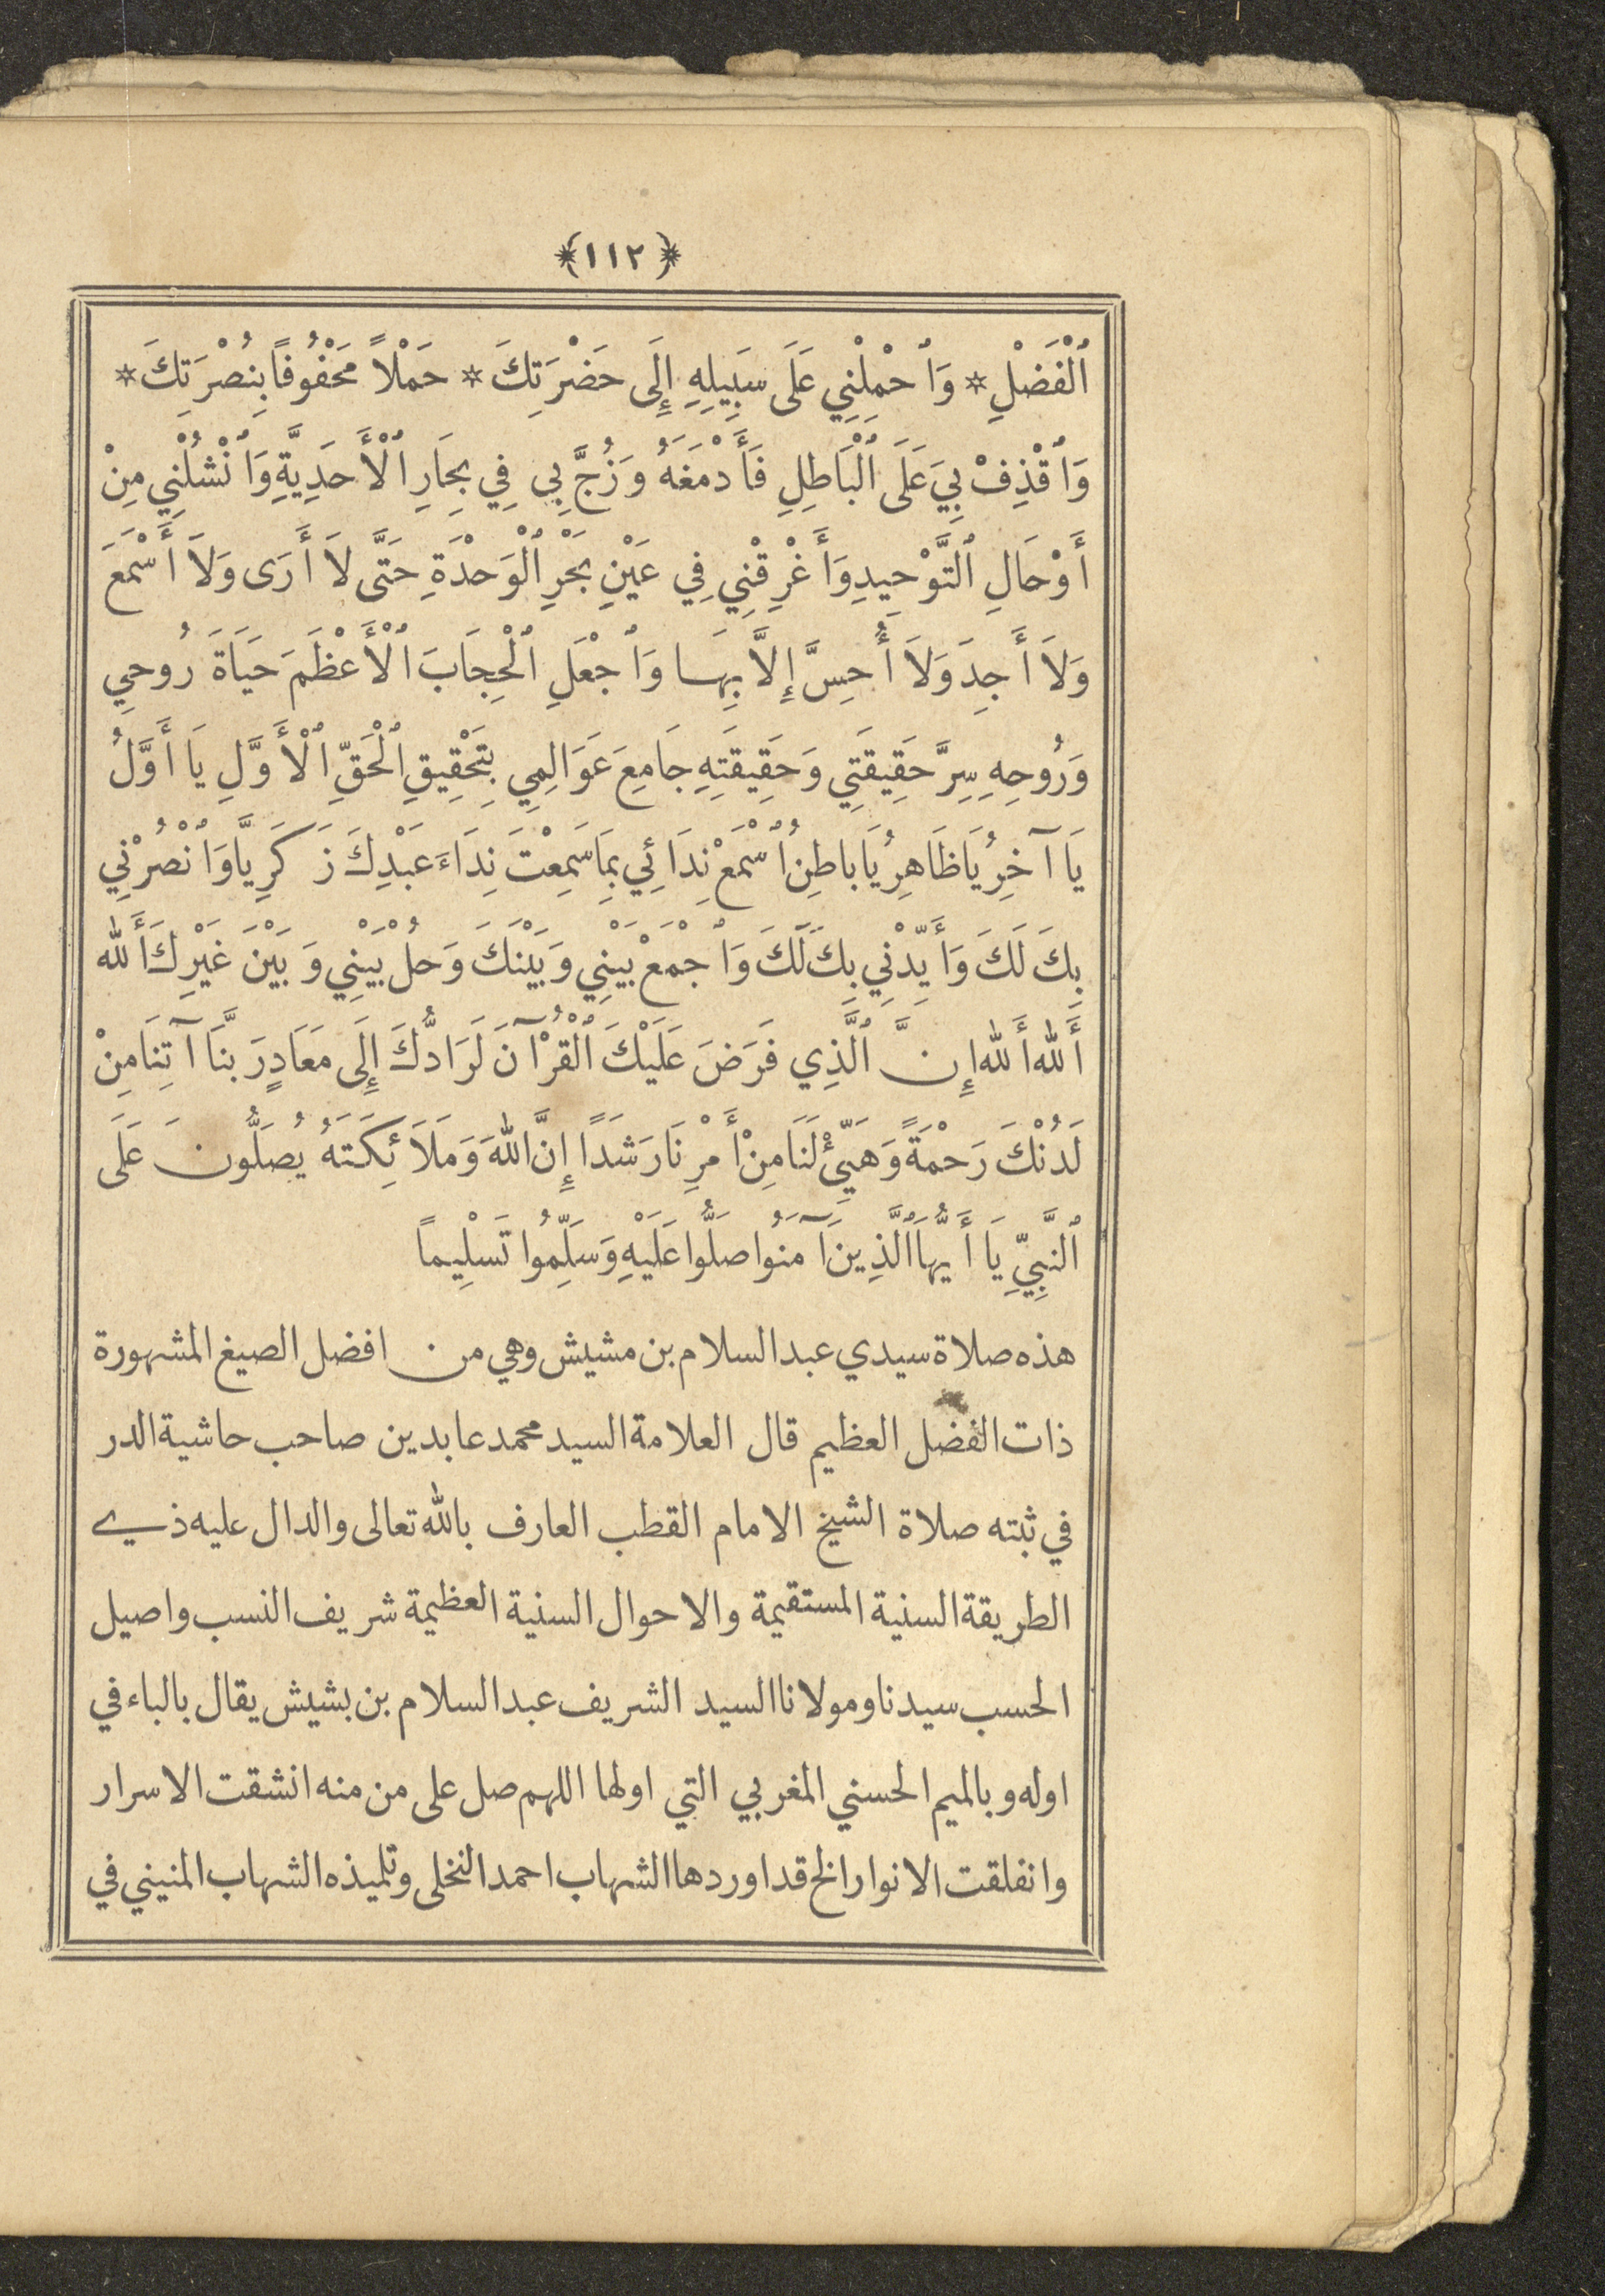 ﴿١١٢﴾
ٱلْفَضْلِ * وَٱحْمِلْنِي عَلَى سَبِيلِهِ إِلَى حَضْرَتِكَ * حَمْلاً مَحْفُوفًا بِنُصْرَتِكَ *
وَٱقْذِفْ بِيَ عَلَى ٱلْبَاطِلِ فَأَدْمَغَهُ وَزُجَّ بِي فِي بِحَارِ ٱلْأَحَدِيَّةِ وَٱنْشُلْنِي مِنْ
أَوْحَالِ ٱلتَّوْحِيدِ وَأَغْرِقْنِي فِي عَيْنِ بَحْرِ ٱلْوَحْدَةِ حَتَّى لاَ أَرَى وَلاَ أَسْمَعَ
وَلاَ أَجِدَ وَلاَ أُحِسَّ إِلاَّ بِهَا وَٱجْعَلِ ٱلْحِجَابَ ٱلْأَعْظَمَ حَيَاةَ رُوحِي
وَرُوحِهِ سِرَّ حَقِيقَتِي وَحَقِيقَتِهِ جَامِعَ عَوَالِمِي بِتَحْقِيقِ ٱلْحَقِّ ٱلْأَوَّلِ يَا أَوَّلُ
يَا آخِرُ يَا ظَاهِرُ يَا بَاطِنُ ٱسْمَعْ نِدَائِي بِمَا سَمِعْتَ نِدَاءَ عَبْدِكَ زَكَرِيَّا وَٱنْصُرْنِي
بِكَ لَكَ وَأَيِّدْنِي بِكَ لَكَ وَٱجْمَعْ بَيْنِي وَبَيْنَكَ وَحُلْ بَيْنِي وَبَيْنَ غَيْرِكَ أَلله
أَلله أَلله إِنَّ ٱلَّذِي فَرَضَ عَلَيْكَ ٱلْقُرْآنَ لَرَادُّكَ إِلَى مَعَادٍ رَبَّنَا آتِنَا مِنْ
لَدُنْكَ رَحْمَةً وَهَيِّئْ لَنَا مِنْ أَمْرِنَا رَشَدًا إِنَّ اللهَ وَمَلاَئِكَتَهُ يُصَلُّونَ عَلَى
ٱلنَّبِيِّ يَا أَيُّهَا ٱلَّذِينَ آمَنُوا صَلُّوا عَلَيْهِ وَسَلِّمُوا تَسْلِيماً
هذه صلاة سيدي عبد السلام بن مشيش وهي من افضل الصيغ المشهورة
ذات الفضل العظيم قال العلامة السيد محمد عابدين صاحب حاشية الدر
في ثبته صلاة الشيخ الامام القطب العارف بالله تعالى والدال عليه ذي
الطريقة السنية المستقيمة والاحوال السنية العظيمة شريف النسب واصيل
الحسب سيدنا ومولانا السيد الشريف عبد السلام بن بشيش يقال بالباء في
اوله وبالميم الحسني المغربي التي اولها اللهم صل على من منه انشقت الاسرار
وانفلقت الانوار الخ قد اوردها الشهاب احمد النخلى وتلميذه الشهاب المنيني في